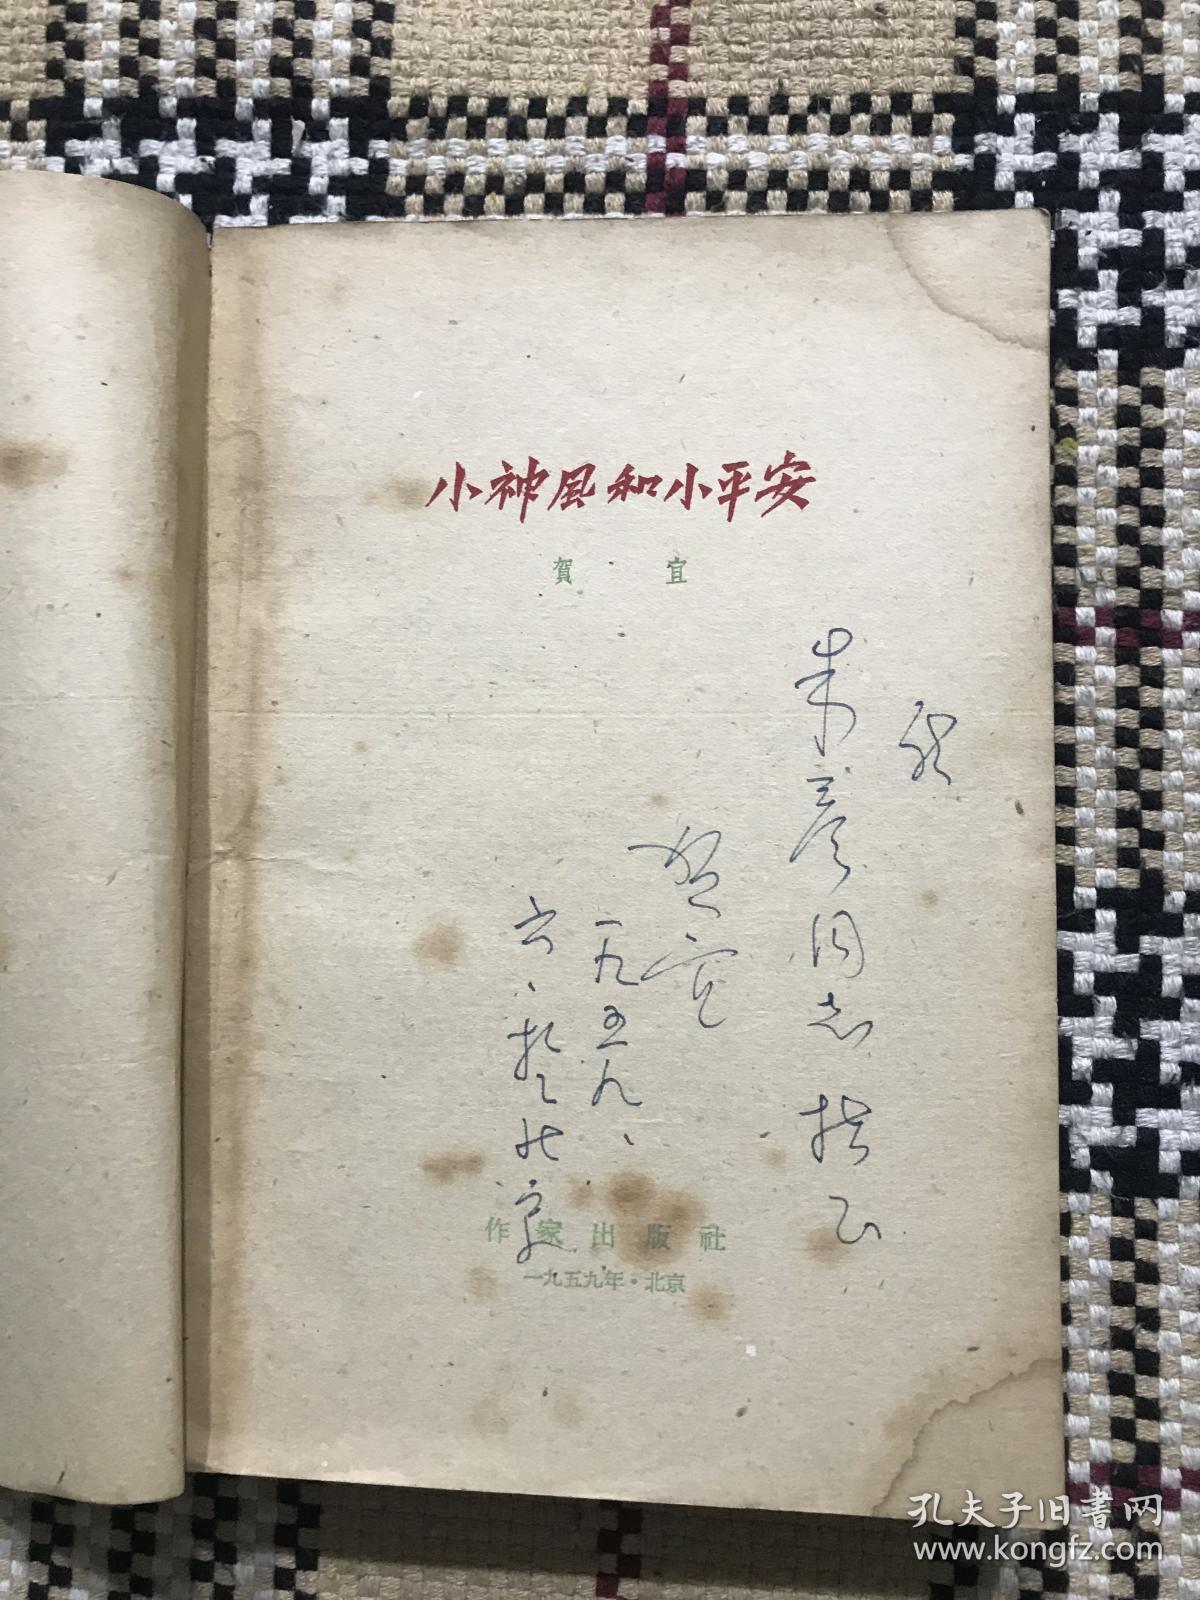 小神風和小平安
賀宜
朱彦同志指正
贺宜
一九五九、
六、於北京
作家出版社
一九五九年·北京
孔夫子旧書网
www.kongfz.com